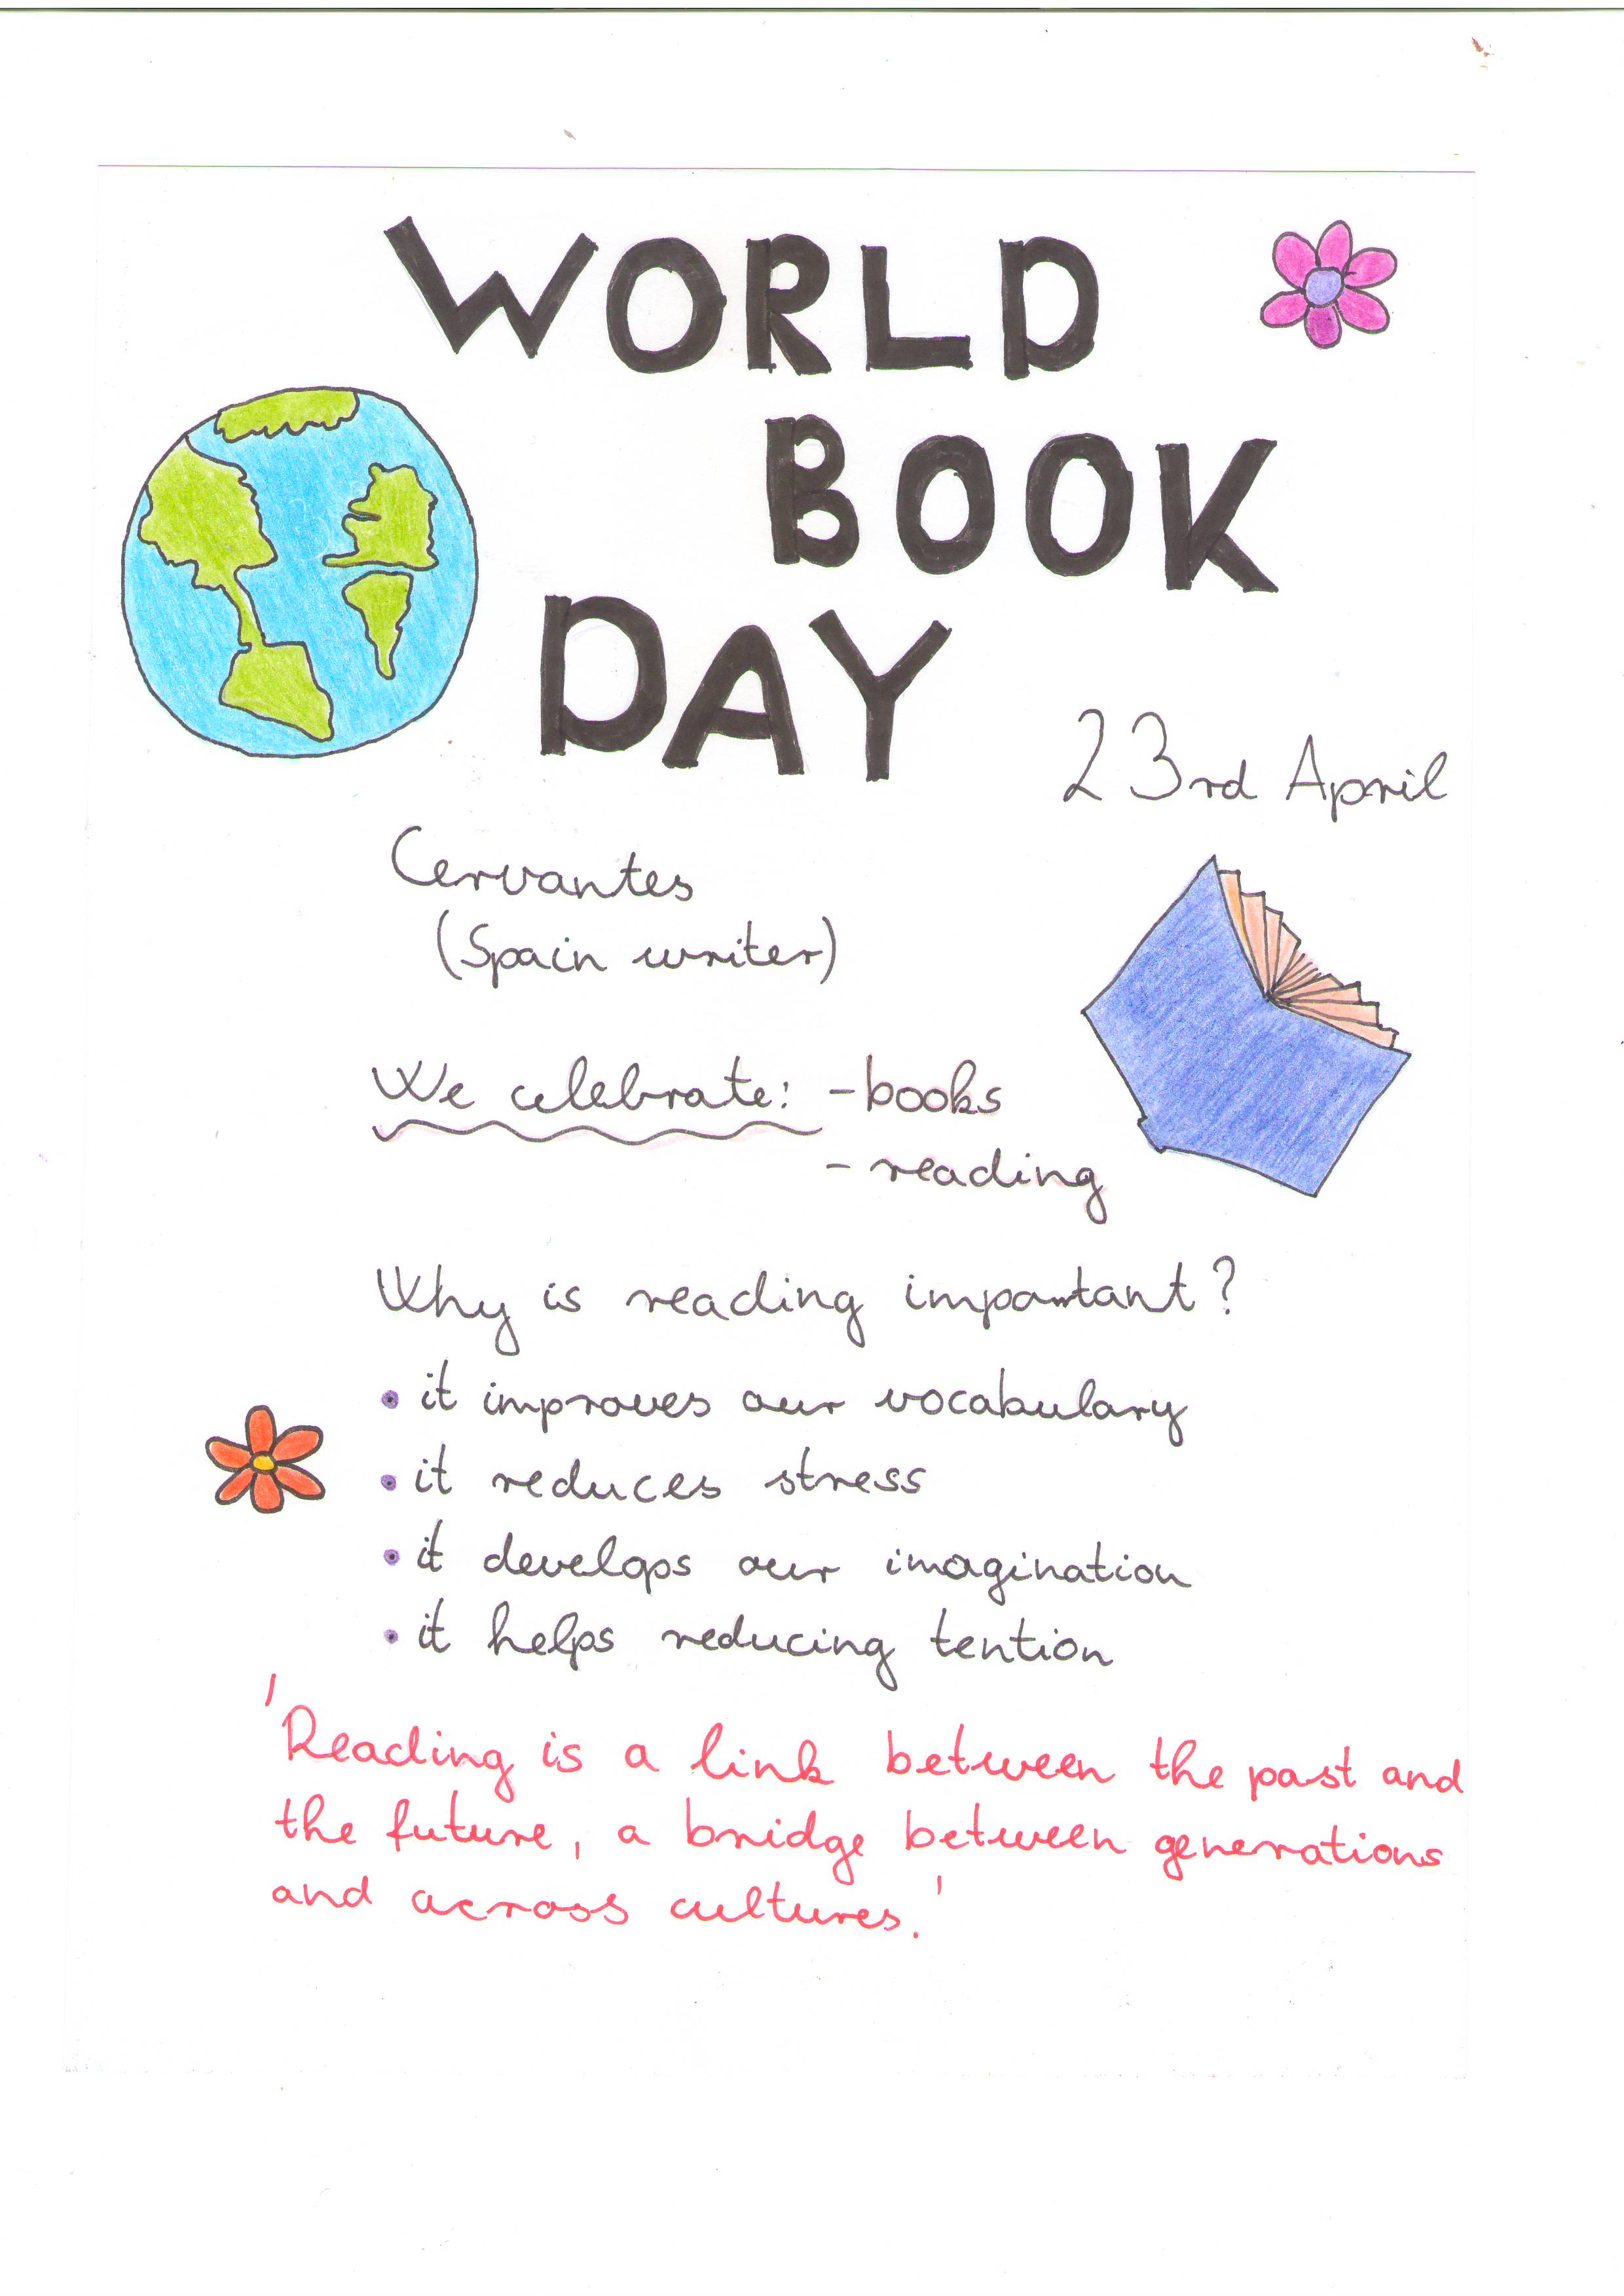 WORLD
BOOK
DAY
23rd April
Cervantes
(Spain writer)
We celebrate: - books
- reading
Why is reading important?
• it improves our vocabulary
• it reduces stress
• it develops our imagination
• it helps reducing tention
'Reading is a link between the past and
the future, a bridge between generations
and across cultures.'